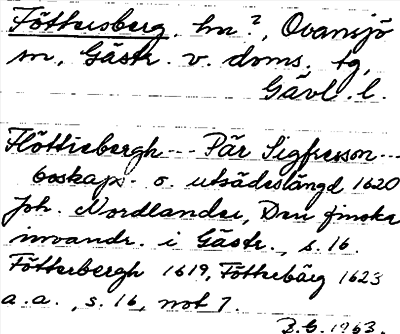 Föttersberg. hn?, Ovansjö
sn, Gästr. v. doms. tg,
Gävl. l.
Flöttiebergh --- Pär Sigfresson ---
boskaps- o. utsädeslängd 1620
Joh. Nordlander, Den finska
invandr. i Gästr., s. 16.
Fötterbergh 1619, Fötterbärg 1623
a.a., s. 16, not 7.
1963.